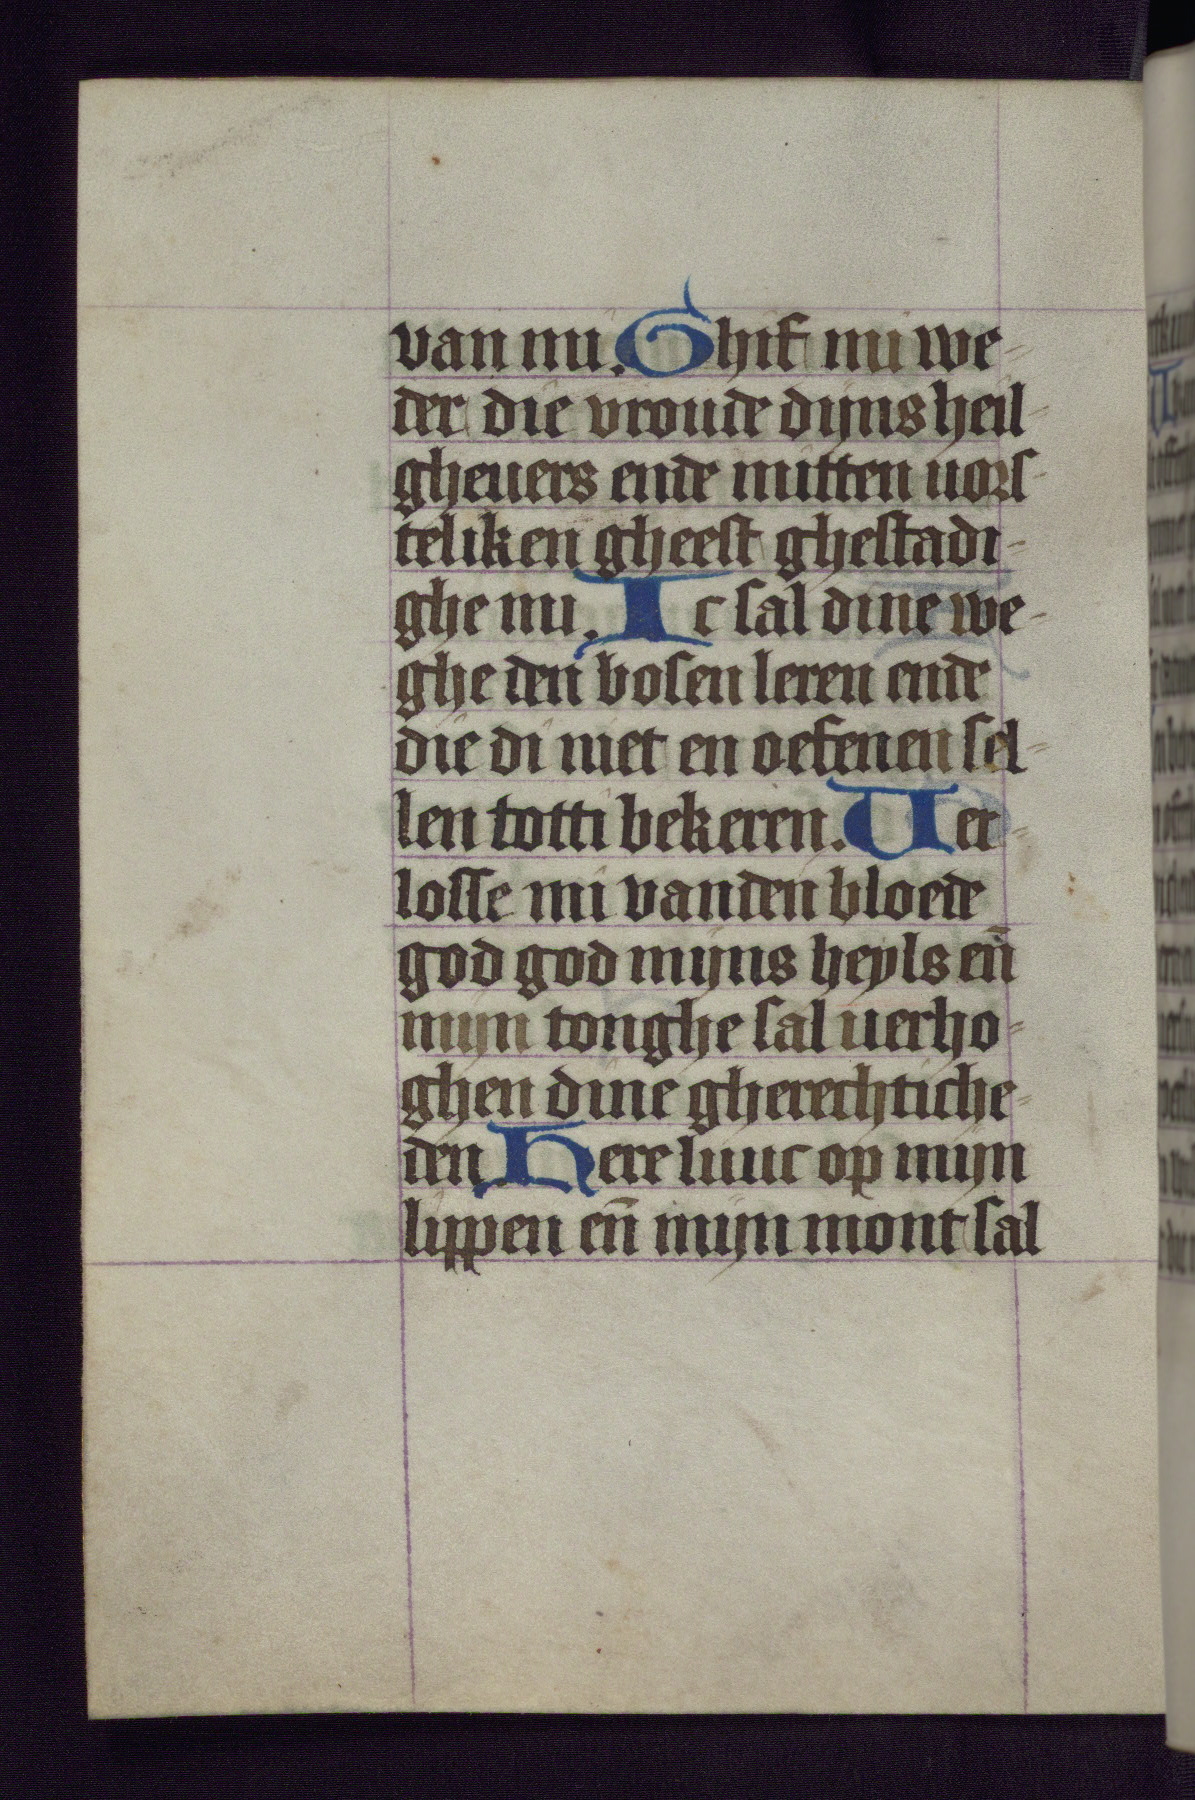 van mi. Ghif mi we-
der die vroude dijns heil-
gheuers ende mitten uors-
teliken gheest ghestadi-
ghe mi. Ic sal dine we-
ghe den bosen leren ende
die di niet en oefenen sel-
len totti bekeren. Uer-
losse mi vanden bloede
god god mijns heyls en̄
mijn tonghe sal uerho-
ghen dine gherechtiche-
den Here luuc op mijn
lippen en̄ mijn mont sal